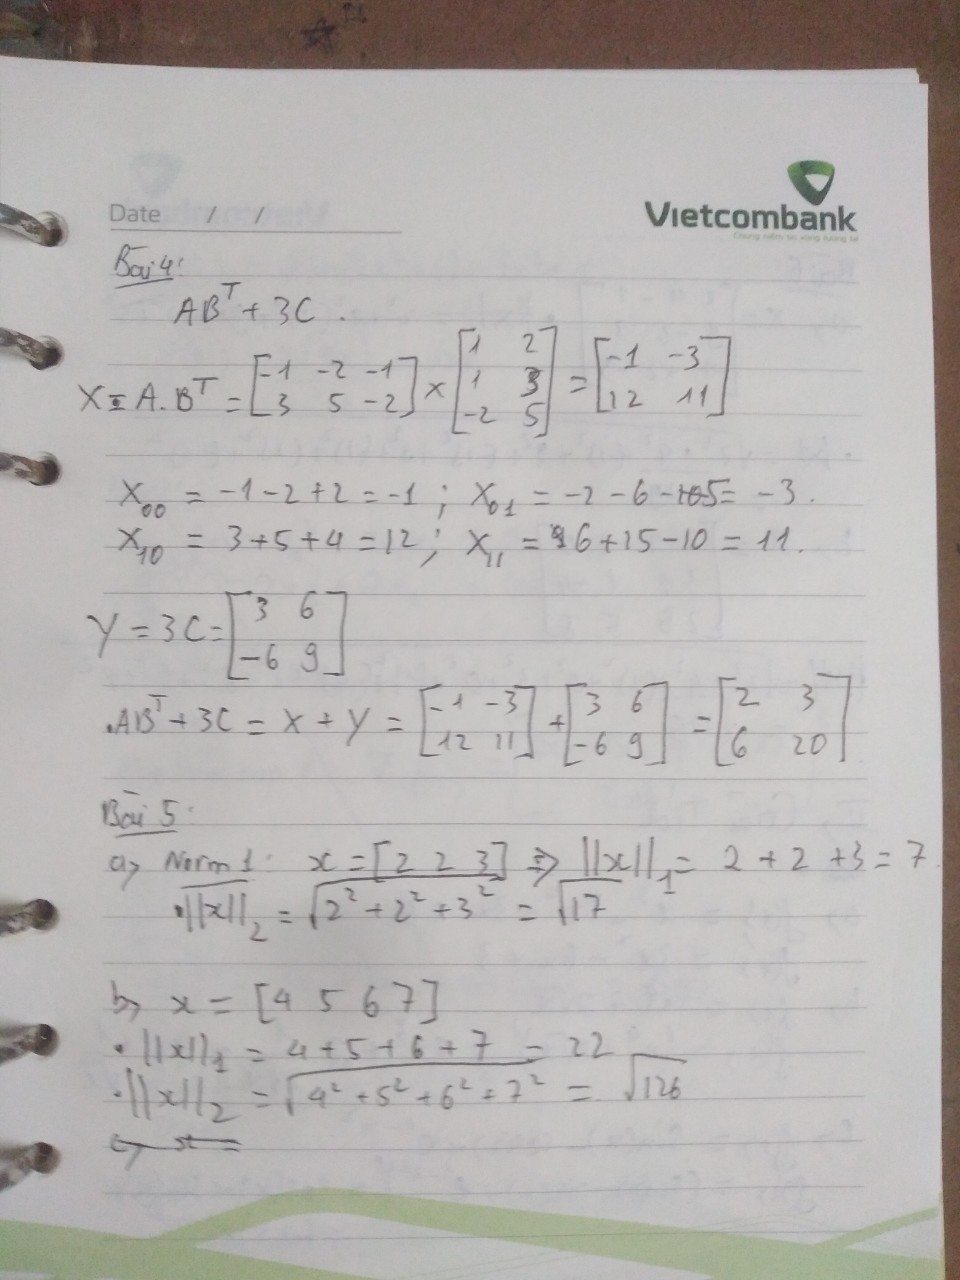 Date / /
Vietcombank
Chung niềm tin vững tương lai
Bài 4:
AB^T + 3C.
X = A.B^T = [-1 -2 -1; 3 5 -2] × [1 2; 1 3; -2 5] = [-1 -3; 12 11]
X₀₀ = -1-2+2 = -1 ; X₀₁ = -2-6-5 = -3.
X₁₀ = 3+5+4 = 12 ; X₁₁ = 6+15-10 = 11.
Y = 3C = [3 6; -6 9]
.AB^T + 3C = X + Y = [-1 -3; 12 11] + [3 6; -6 9] = [2 3; 6 20]
Bài 5:
a, Norm 1: x = [2 2 3] => ||x||₁ = 2 + 2 + 3 = 7.
• ||x||₂ = √(2² + 2² + 3²) = √17
b, x = [4 5 6 7]
• ||x||₁ = 4 + 5 + 6 + 7 = 22
• ||x||₂ = √(4² + 5² + 6² + 7²) = √126